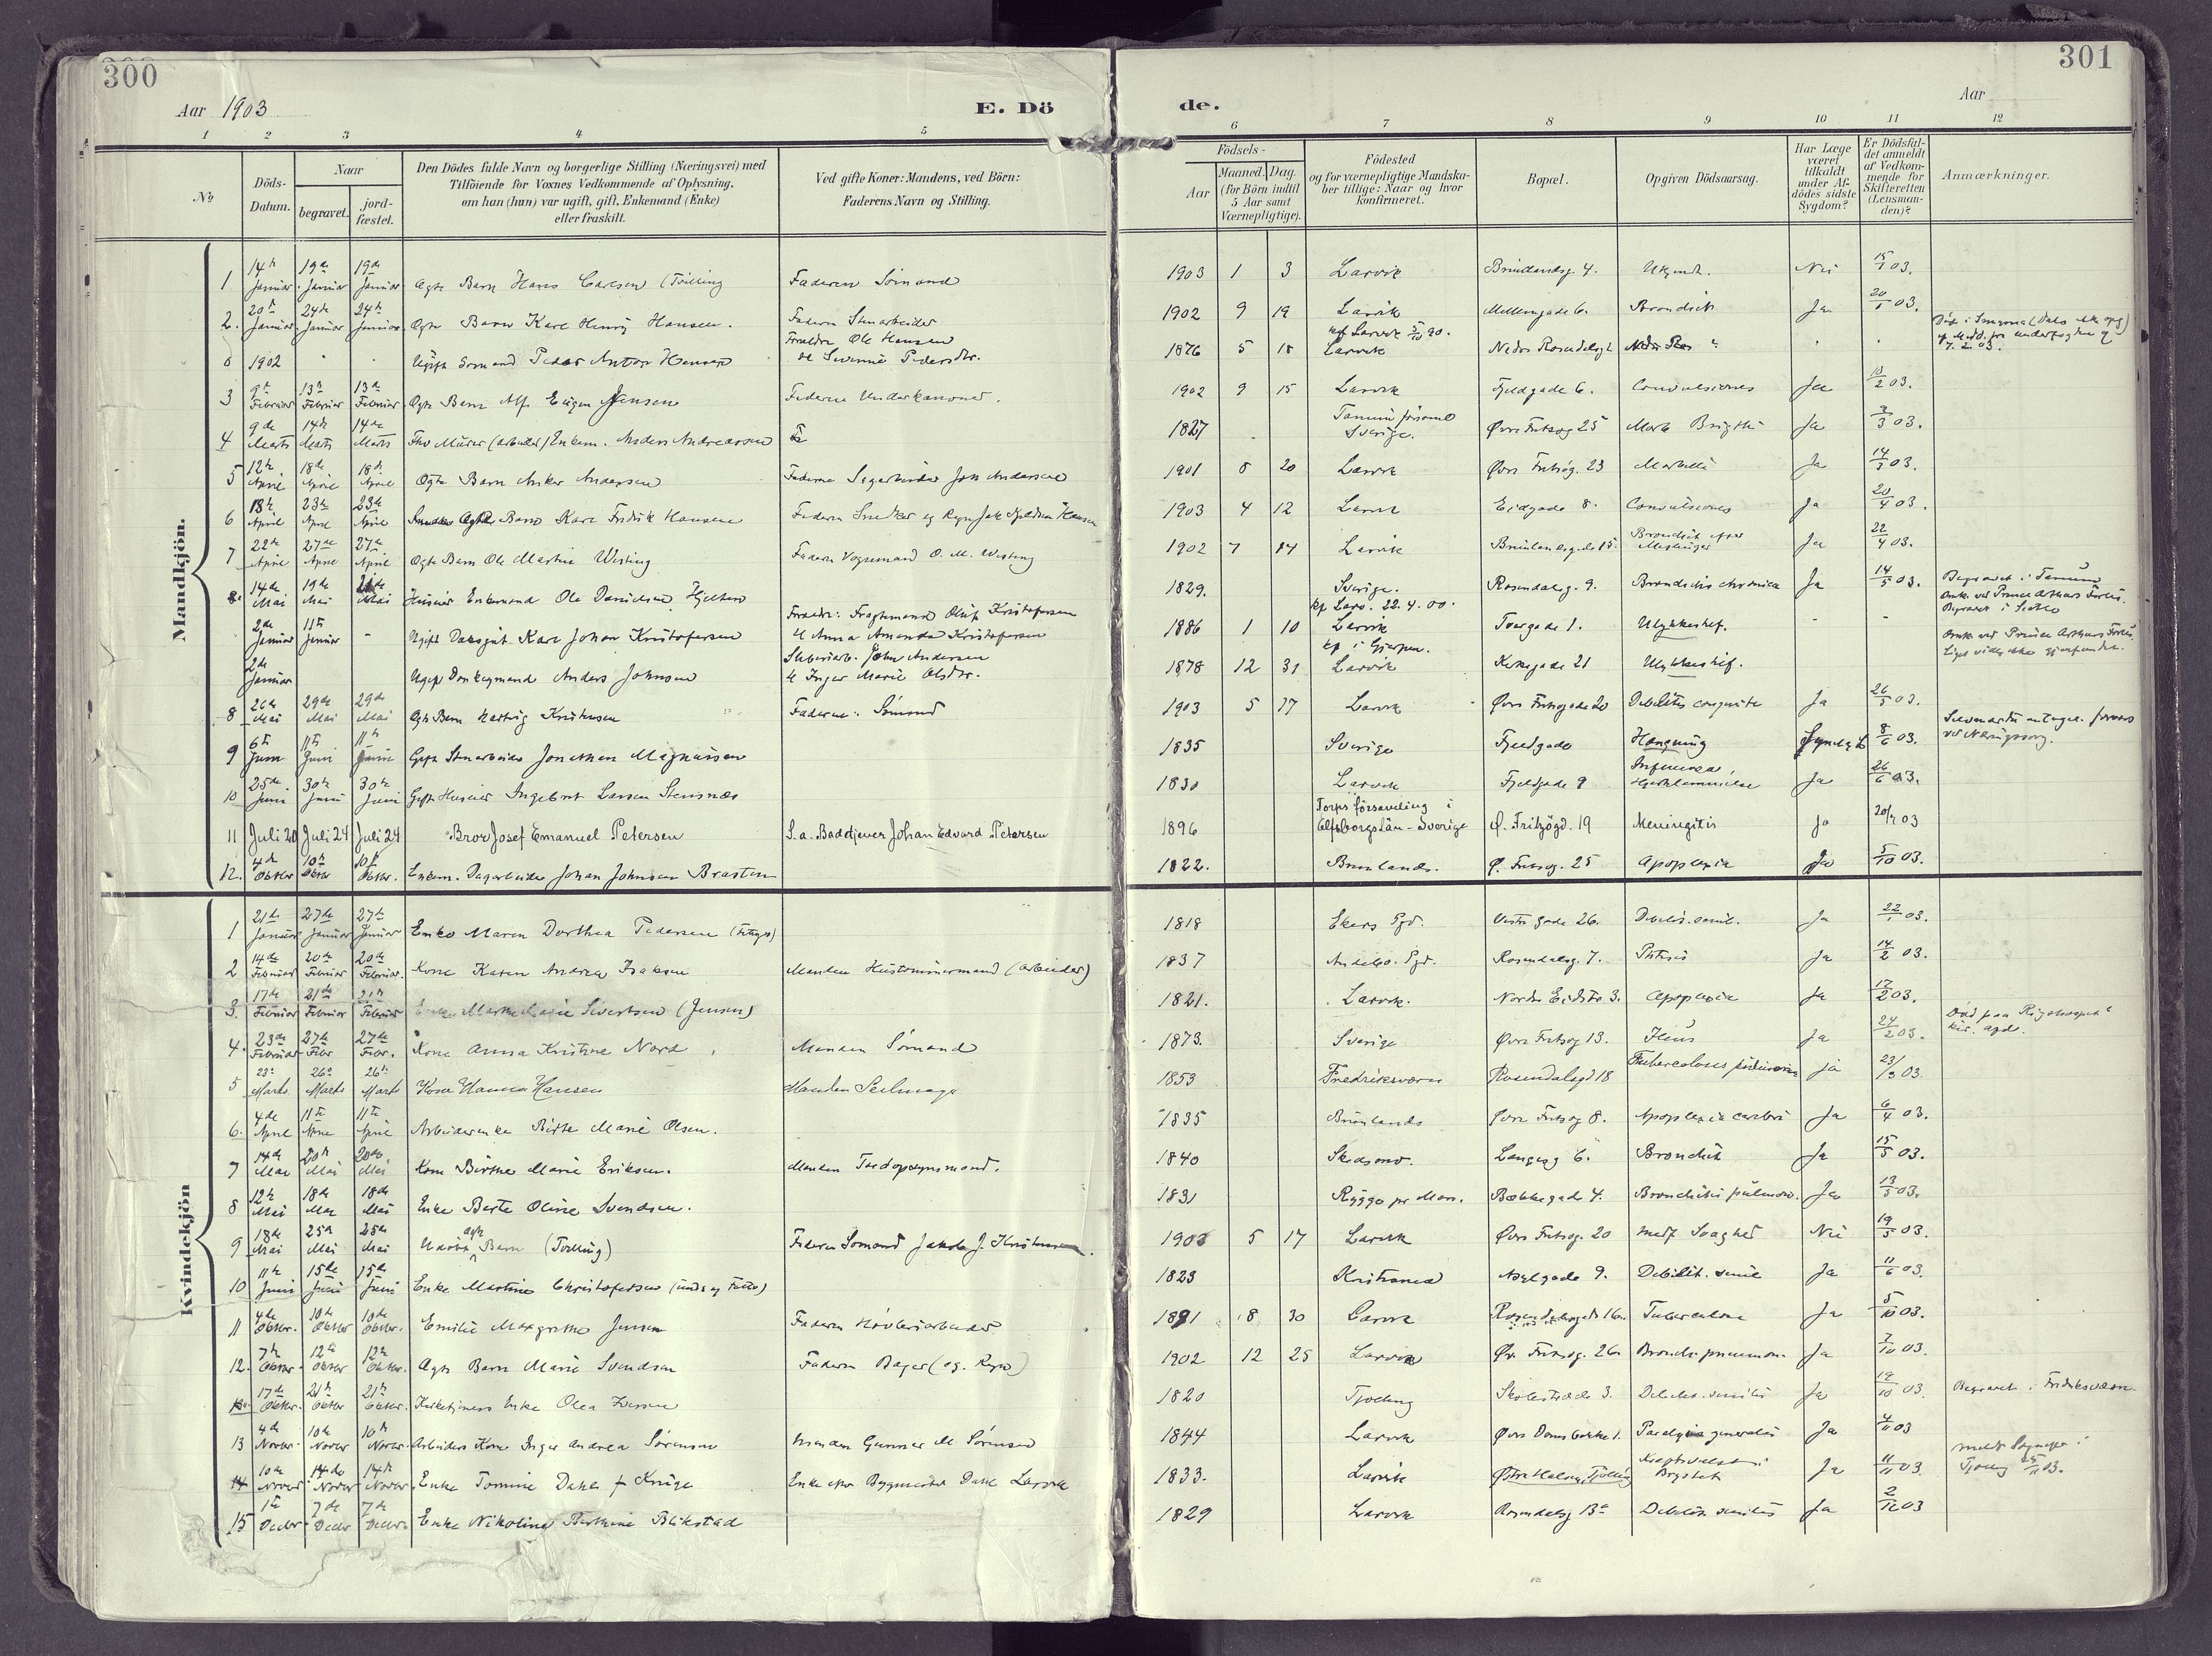 300
301
Aar 1903
E. Dö
de.
Aar
1 2 3 4 5 6 7 8 9 10 11 12
No
Döds-Datum.
Naar
begravet.
jord-fæstet.
Den Dödes fulde Navn og borgerlige Stilling (Næringsvei) med
Tilföiende for Voxnes Vedkommende af Oplysning,
om han (hun) var ugift, gift, Enkemand (Enke)
eller fraskilt.
Ved gifte Koner: Mandens, ved Börn:
Faderens Navn og Stilling.
Födsels-
Aar
Maaned.
Dag.
(for Börn indtil
5 Aar samt
Værnepligtige).
Födested
og for værnepligtige Mandska-
ber tillige: Naar og hvor
konfirmeret.
Bopæl.
Opgiven Dödsaarsag.
Har Læge
været
tilkaldt
under Af-
dödes sidste
Sygdom?
Er Dödsfal-
det anmeldt
af Vedkom-
mende for
Skifteretten
(Lensman-
den)?
Anmærkninger.
Mandkjön.
1 14 Januar 19de Januar 19de Januar Ægte Barn Hans Carlsen (Tvilling Faderen Sömand 1903 1 3 Larvik 4. Nei 15/1 03.
2. 20 Januar 24de Januar 24de Januar Ægte Barn Karl Henry Hansen. Faderen Stenarbeider 1902 9 19 Larvik Mellemgade 6. Bronchit Ja 20/1 03.
0 1902 Ugift Sömand Peder Anton Hansen Forældre Ole Hansen
1876 5 18 Larvik
3 9 Februar 13de Februar 13de Februar Ægte Barn Alf Eugen Jensen Faderen 1902 9 15 Larvik Fjeldgade 6. Convulsiones Ja 10/2 03.
4 9de Marts 14de Marts 14de Marts Enkem. Anders Andreassen 1827 Sverige. Øvre Fritsøg 25 Morb. Brigthi Ja 03.
5 12te April 18de April 18de April Ægte Barn Anker Andersen Faderen Andersen 1901 8 20 Larvik Øvre Fritsøg. 23 Ja 14/ 03.
6 18de April 23de April 23de April Barn Karl Fredrik Hansen Faderen Hansen 1903 4 12 Larvik Eidgade 8. Convulsiones Ja 20/4 03.
7 22de April 27de April 27de April Ægte Barn Ole Martin Wisting Faderen Vognmand O. M. Wisting 1902 7 14 Larvik Bronchit efter Meslinger Ja 22/4 03.
8. 14de Mai 19de Mai Mai Enkemand Ole Danielsen 1829. Sverige. Rosendalsg. 9. Bronchitis chronica Ja 14/5 03. Begravet i Tanum
2de Januar 11te Januar - Ugift Karl Johan Kristofersen Kristofersen
& Anna Amanda Kristofersen
kf. Larv. 22. 4. 00.
1886 1 10 Larvik Torgade 1. Ulykkestilf. - -
2de Januar Ugift Donkeymand Anders Johnsen John Andersen
& Inger Marie Olsdtr.
kf i Gjerpen.
1878 12 31 Larvik Kirkegade 21 Ulykkestilf.
8 26de Mai 29de Mai 29de Mai Ægte Barn Hartvig Kristensen Faderen: Sömand 1903 5 17 Larvik Øvre Fritsøgade 20 Debilitas congenita Ja 26/5 03.
9 6te Juni 11te Juni 11te Juni Gift Stenarbeider Jonathan Magnussen 1835 Sverige Fjeldgade Hængning 8/6 03.
10 25de Juni 30te Juni 30te Juni Gift Huseier Ingebret Larsen Stensnæs 1830 Larvik Fjeldgade 9 Influenza, Hjertelammelse Ja 26/6 03.
11 Juli 20 Juli 24 Juli 24 Bror Josef Emanuel Petersen S.a. Badetjener Johan Edvard Petersen 1896 Torps församling i
Elfsborgslän - Sverige Ø. Fritzögd. 19 Meningitis Ja 20/7 03
12. 4de Oktbr 10de Oktbr 10de Oktbr. Enkem. Dagarbeider Johan Johnsen Braaten 1822. Brunlanes. Ø. Fritsøg. 25 Apoplexia Ja 5/10 03.
Kvindekjön
1 21de Januar 27de Januar 27de Januar Enke Maren Dorthea Pedersen 1818 Ekers Pgd. Vestre Gade 26. Debilit. senil. Ja 22/1 03.
2 14de Februar 20de Februar 20de Februar. Kone Karen Andrea Isaksen Manden Hustømmermand (Arbeider) 1837 Andebo. Pgd. Rosendalsg. 7. Phtisis Ja 14/2 03.
3. 17de Februar 21de Februar 21de Februar Enke Sivertsen (Jensen) 1821. Larvik. Nordre Eidstr 3. Apoplexia Ja 17/2 03.
4. 23de Februar 27de Febr 27de Febr. Kone Anna Kristine Nord Manden Sömand 1873. Sverige Øvre Fritsøg 13. Ileus Ja 24/2 03. Død paa Rigshospit.
kir. afd.
5 23 Marts 26 Marts 26 Marts Kone Hanna Hansen Manden Seilmager 1853 Fredriksværn Rosendalsgd 18 Tuberculosis pulmonum ja 23/3 03.
6. 4de April 11te April 11te April Arbeiderenke Birte Marie Olsen. 1835 Brunlanes Øvre Fritsøg 8. Apoplexia cerebri Ja 6/4 03.
7 14de Mai 20de Mai 20de Mai Kone Birthe Marie Eriksen. Manden Tredopsynsmand. 1840 Skedsmo. Langesg 6. Bronchit Ja 15/5 03.
8 12te Mai 18de Mai 18de Mai Enke Berte Oline Svendsen. 1831 Rygge pr Moss. Bækkegade 4. Bronchitis pulmon. Ja 13/5 03.
9 18de Mai 25de Mai 25de Mai Udöbt ægte Barn (Tvilling) Faderen Sömand Jakob J. Kristensen. 1903 5 17 Larvik Øvre Fritsøg. 20 medf Svaghed Nei 19/5 03.
10 11te Juni 15de Juni 15de Juni Enke Martine Christofersen 1823 Kristiania Asylgade 9. Debilit. senil Ja 11/6 03.
11 4de Oktbr. 10de Oktbr 10de Oktbr. Emilie Margrethe Jensen Faderen Høvleriarbeider 1891 8 30 Larvik Rosendalsgade 16. Tuberculose Ja 5/10 03.
12. 7de Oktbr. 12te Oktbr 12te Oktbr. Ægte Barn Marie Svendsen Faderen Bager 1902 12 25 Larvik Øv. Fritsøg. 26. Broncho pneumon. Ja 7/10 03.
17de Oktbr. 21de Oktbr 21de Oktbr. Kirketjeners Enke Olea Iversen 1820 Tjølling Skolestræde 3. Debilit. senilis Ja 19/10 03. Begravet i Fredriksværn.
13 4de Novbr. 10de Novbr 10de Novbr. Arbeiders Kone Inger Andrea Sørensen Manden Gunner M Sørensen 1844 Larvik Øvre Damsbakke 1. Paralysia generalis Ja 4/11 03
14 10de Novbr 14de Novbr 14de Novbr. Enke Tomine Dahl f. Krüge Enke efter Bygmester Dahl Larvik 1833. Larvik Østre Halsen, Tjølling Brystet Ja 11/11 03. meldt Sogneprest i
Tjølling /11 03.
15 1te Decbr. 7de Decbr 7de Decbr. Enke Nikoline Berthine Blikstad 1829 Larvik Rosendalsg 13a Debilitas senilis Ja 2/12 03